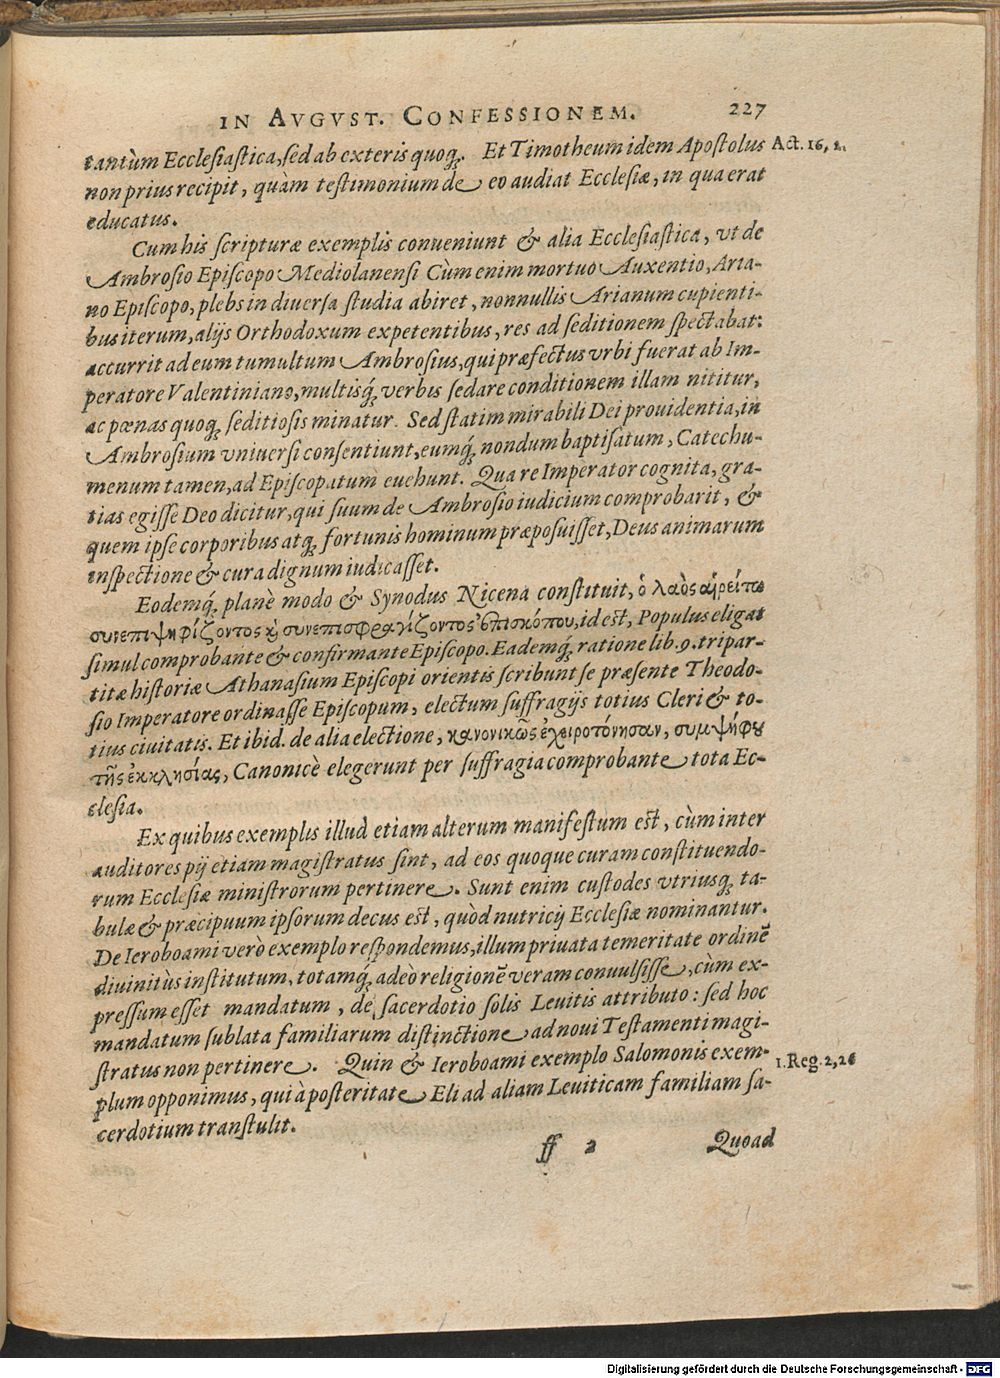 IN AVGVST. CONFESSIONEM. 227
tantùm Ecclesiastica, sed ab exteris quoq;. Et Timotheum idem Apostolus Act. 16, 2.
non prius recipit, quàm testimonium de eo audiat Ecclesiæ, in qua erat
educatus.
Cum his scripturæ exemplis conueniunt & alia Ecclesiastica, vt de
Ambrosio Episcopo Mediolanensi Cùm enim mortuo Auxentio, Aria-
no Episcopo, plebs in diuersa studia abiret, nonnullis Arianum cupienti-
bus iterum, alijs Orthodoxum expetentibus, res ad seditionem spectabat:
accurrit ad eum tumultum Ambrosius, qui præfectus vrbi fuerat ab Im-
peratore Valentiniano, multisq; verbis sedare conditionem illam nititur,
ac pœnas quoq; seditiosis minatur. Sed statim mirabili Dei prouidentia, in
Ambrosium vniuersi consentiunt, eumq; nondum baptisatum, Catechu-
menum tamen, ad Episcopatum euehunt. Qua re Imperator cognita, gra-
tias egisse Deo dicitur, qui suum de Ambrosio iudicium comprobarit, &
quem ipse corporibus atq; fortunis hominum præposuisset, Deus animarum
inspectione & cura dignum iudicasset.
Eodemq; planè modo & Synodus Nicena constituit, ὁ λαὸς αἱρείτω
συνεπιψηφίζοντος κỳ συνεπισφραγίζοντος ἐπισκόπου, id est, Populus eligat
simul comprobante & confirmante Episcopo. Eademq; ratione lib. 9. tripar-
titæ historiæ Athanasium Episcopi orientis scribunt se præsente Theodo-
sio Imperatore ordinasse Episcopum, electum suffragijs totius Cleri & to-
tius ciuitatis. Et ibid. de alia electione, κανονικῶς ἐχειροτόνησαν, συμψήφου
τῆς ἐκκλησίας, Canonicè elegerunt per suffragia comprobante tota Ec-
clesia.
Ex quibus exemplis illud etiam alterum manifestum est, cùm inter
auditores pij etiam magistratus sint, ad eos quoque curam constituendo-
rum Ecclesiæ ministrorum pertinere. Sunt enim custodes vtriusq; ta-
bulæ & præcipuum ipsorum decus est, quòd nutricij Ecclesiæ nominantur.
De Ieroboami verò exemplo respondemus, illum priuata temeritate ordinē
diuinitùs institutum, totamq; adeò religionē veram conuulsisse, cùm ex-
pressum esset mandatum, de sacerdotio solis Leuitis attributo: sed hoc
mandatum sublata familiarum distinctione ad noui Testamenti magi-
stratus non pertinere. Quin & Ieroboami exemplo Salomonis exem- 1. Reg. 2, 26
plum opponimus, qui à posteritate Eli ad aliam Leuiticam familiam sa-
cerdotium transtulit.
ff 2 Quoad
Digitalisierung gefördert durch die Deutsche Forschungsgemeinschaft - DFG